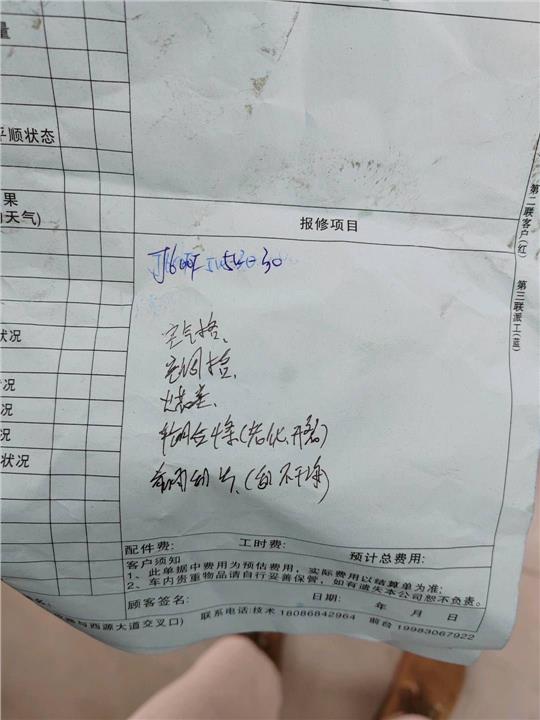 量
平顺状态
果
天气)
报修项目
空气格、
空调格、
火花塞、
(老化、开裂)
(刮不干净)
状况
状况
配件费:
工时费:
预计总费用:
客户须知
1、此单据中费用为预估费用，实际费用以结算单为准;
2、车内贵重物品请自行妥善保管，如有遗失本公司恕不负责。
顾客签名:
日期: 年 月 日
与西源大道交叉口)
联系电话:技术 18086842964 前台 19983067922
第二联客户(红)
第三联派工(蓝)